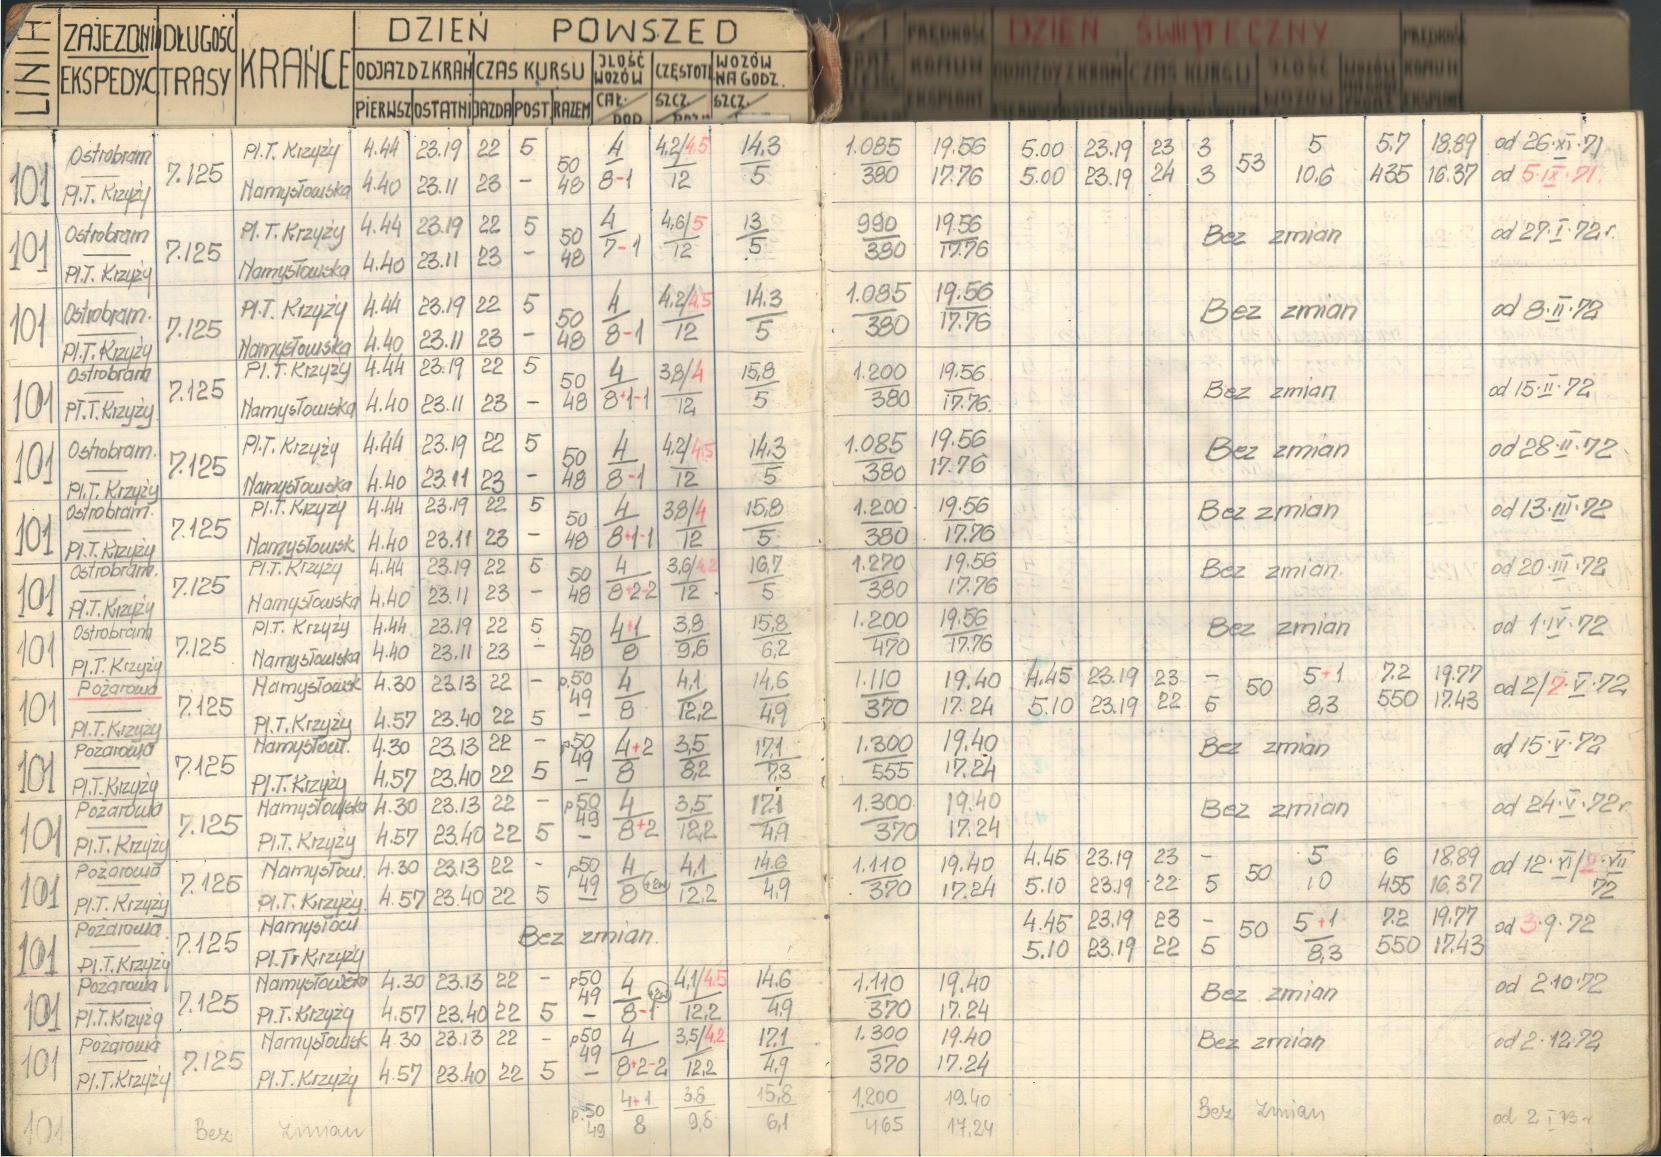 LINIA ZAJEZDNI DŁUGOŚĆ KRAŃCE DZIEŃ POWSZED
EKSPEDYC TRASY ODJAZD Z KRAŃ CZAS KURSU ILOŚĆ WOZÓW CZĘSTOTL WOZÓW NA GODZ.
PIERWSZ OSTATNI JAZDA POST RAZEM CAŁ. SZCZ. SZCZ.
PRĘDKOŚĆ DZIEŃ ŚWIĄTECZNY PRĘDKOŚĆ
KOMUN ODJAZDY Z KRAŃ CZAS KURSU ILOŚĆ WOZÓW KOMUN
EKSPLOAT
101 Ostrobram 7.125 Pl.T. Krzyży 4.44 23.19 22 5 50 4 4.2/4.5 14,3 1.085 19.56 5.00 23.19 23 3 53 5 5.7 18.89 od 26·XI·71
Pl.T. Krzyży Namysłowska 4.40 23.11 23 – 48 8-1 12 5 380 17.76 5.00 23.19 24 3 10,6 435 16.37 od 5·IX·71.
101 Ostrobram 7.125 Pl.T. Krzyży 4.44 23.19 22 5 50 4 4,6/5 13 990 19.56 Bez zmian od 27·I·72r.
Pl.T. Krzyży Namysłowska 4.40 23.11 23 – 48 7-1 12 5 380 17.76
101 Ostrobram. 7.125 Pl.T. Krzyży 4.44 23.19 22 5 50 4 4.2/4.5 14.3 1.085 19.56 Bez zmian od 8·II·72
Pl.T. Krzyży Namysłowska 4.40 23.11 23 – 48 8-1 12 5 380 17.76
101 Ostrobram 7.125 Pl.T. Krzyży 4.44 23.19 22 5 50 4 3,8/4 15,8 1.200 19.56 Bez zmian od 15·II·72
Pl.T. Krzyży. Namysłowska 4.40 23.11 23 – 48 8+1-1 12 5 380 17.76.
101 Ostrobram. 7.125 Pl.T. Krzyży 4.44 23.19 22 5 50 4 4.2/4.5 14.3 1.085 19.56 Bez zmian od 28·II·72
Pl.T. Krzyży Namysłowska 4.40 23.11 23 – 48 8-1 12 5 380 17.76
101 Ostrobram. 7.125 Pl.T. Krzyży 4.44 23.19 22 5 50 4 3,8/4 15,8 1.200 19.56 Bez zmian od 13·III·72
Pl.T. Krzyży Namysłowsk 4.40 23.11 23 – 48 8+1-1 12 5 380 17.76
101 Ostrobram. 7.125 Pl.T. Krzyży 4.44 23.19 22 5 50 4 3,6/4,2 16,7 1.270 19.56 Bez zmian od 20·III·72
Pl.T. Krzyży Namysłowska 4.40 23.11 23 – 48 8+2-2 12 5 380 17.76
101 Ostrobram 7.125 Pl.T. Krzyży 4.44 23.19 22 5 50 4+1 3,8 15,8 1.200 19.56 Bez zmian od 1·IV·72
Pl.T. Krzyży Namysłowska 4.40 23.11 23 – 48 8 9,6 6,2 470 17.76
101 Pożarowa 7.125 Namysłowsk 4.30 23.13 22 – p.50 4 4,1 14,6 1.110 19.40 4.45 23.19 23 – 50 5+1 7.2 19.77 od 2/2·V·72
Pl.T. Krzyży Pl.T. Krzyży 4.57 23.40 22 5 49 – 8 12,2 4,9 370 17.24 5.10 23.19 22 5 8,3 550 17.43
101 Pożarowa 7.125 Namysłow. 4.30 23.13 22 – p.50 4+2 3,5 17,1 1.300 19.40 Bez zmian od 15·V·72
Pl.T. Krzyży Pl.T. Krzyży 4.57 23.40 22 5 49 – 8 8,2 7,3 555 17.24
101 Pożarowa 7.125 Namysłowska 4.30 23.13 22 – p50 4 3,5 17,1 1.300 19.40 Bez zmian od 24·V·72r.
Pl.T. Krzyży Pl.T. Krzyży 4.57 23.40 22 5 49 – 8+2 12,2 4,9 370 17.24
101 Pożarowa 7.125 Namysłow. 4.30 23.13 22 – p50 4 4,1 14.6 1.110 19.40 4.45 23.19 23 – 50 5 6 18.89 od 12·VI/2·VII
Pl.T. Krzyży Pl.T. Krzyży. 4.57 23.40 22 5 49 – 8 12,2 4,9 370 17.24 5.10 23.19 22 5 10 455 16.37 72
101 Pożarowa 7.125 Namysłow Bez zmian. 4.45 23.19 23 – 50 5+1 7.2 19.77 od 3·9·72
Pl.T. Krzyży Pl.T. Krzyży 5.10 23.19 22 5 8,3 550 17.43
101 Pożarowa 7.125 Namysłowska 4.30 23.13 22 – p50 4 4,1/4.5 14.6 1.110 19.40 Bez zmian od 2·10·72
Pl.T. Krzyży Pl.T. Krzyży 4.57 23.40 22 5 49 – 8-1 12,2 4,9 370 17.24
101 Pożarowa 7.125 Namysłowsk 4.30 23.13 22 – p50 4 3,5/4,2 17,1 1.300 19.40 Bez zmian od 2·12·72
Pl.T. Krzyży Pl.T. Krzyży 4.57 23.40 22 5 49 – 8+2-2 12,2 4,9 370 17.24
101 Bez zmian p.50 4+1 3.8 15,8 1.200 19.40 Bez zmian od 2 I 73 r
49 8 9,8 6,1 465 17,24